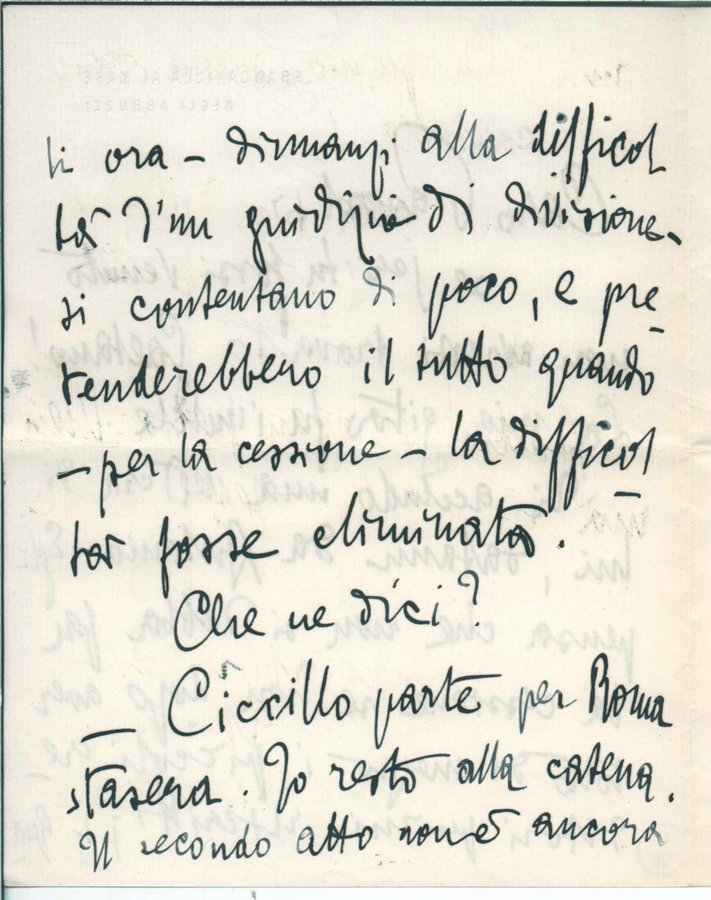 ti ora – dinnanzi alla difficol
tà d'un giudizio di divisione –
si contentano di poco, e pre
tenderebbero il tutto quando
– per la cessione – la difficol
tà fosse eliminata.
Che ne dici?
— Ciccillo parte per Roma
stasera. Io resto alla catena.
Il secondo atto non è ancora